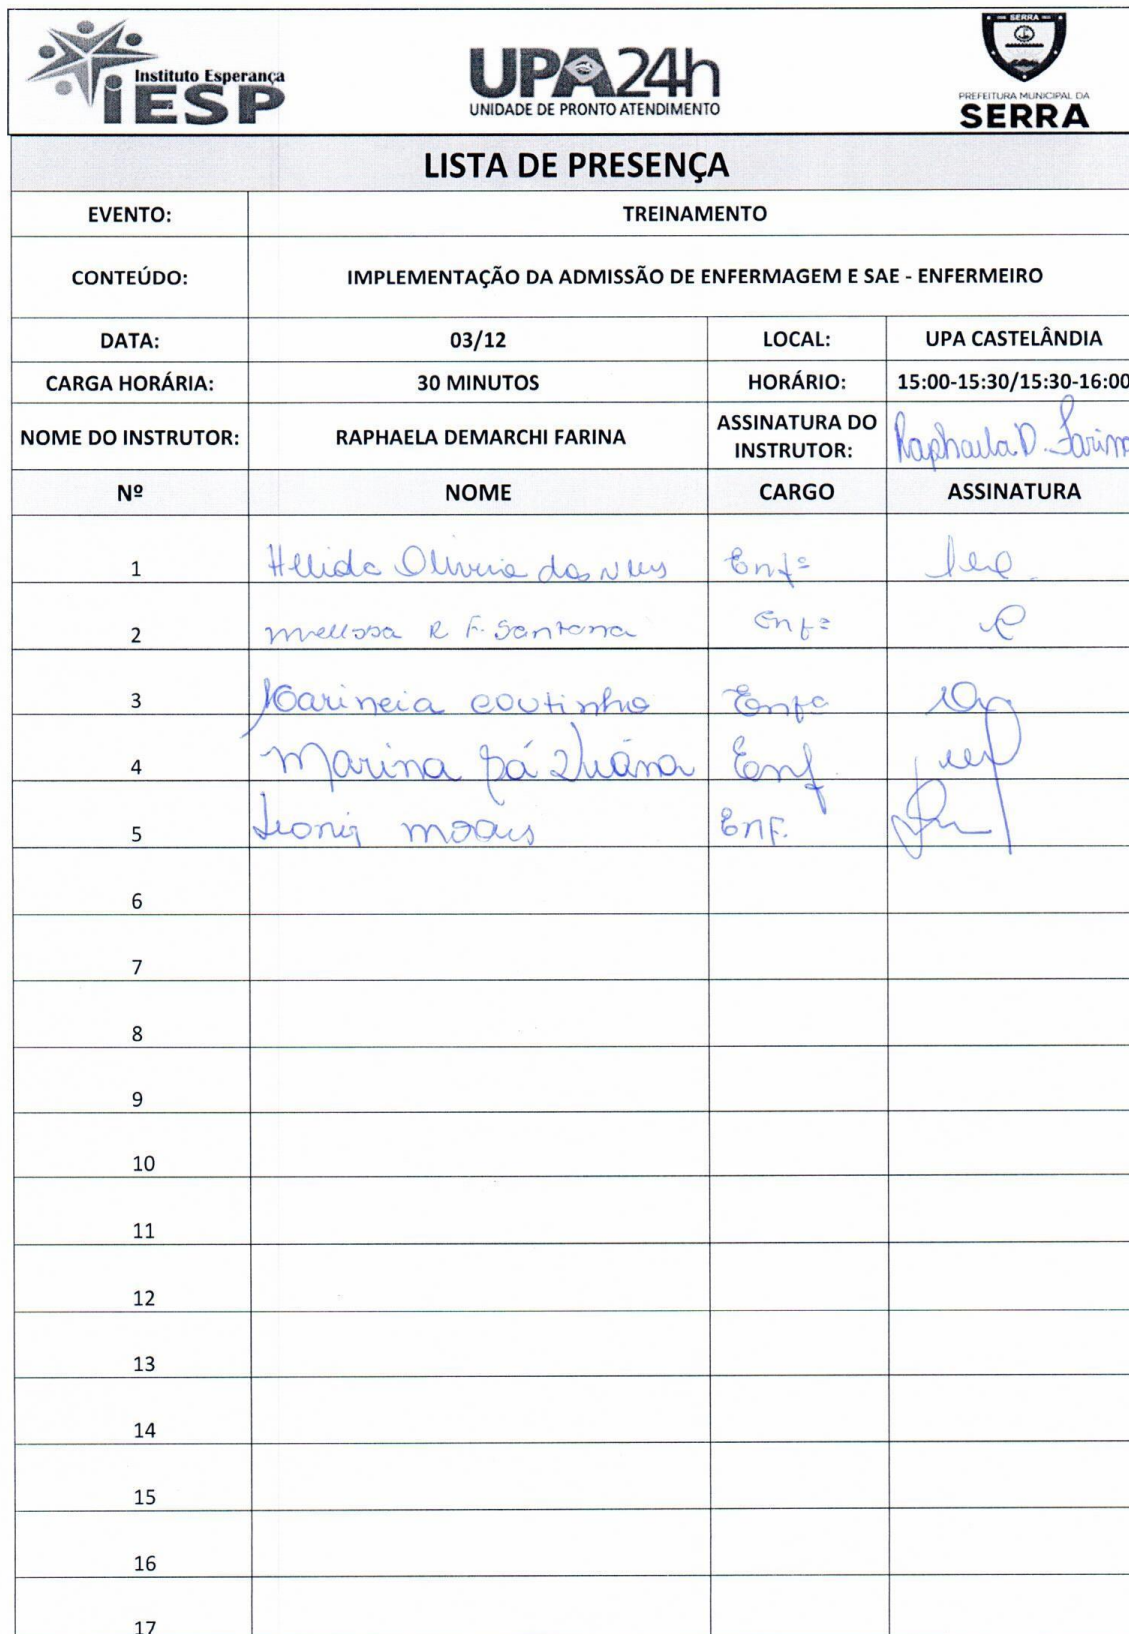 Instituto Esperança
IESP
UPA 24h
UNIDADE DE PRONTO ATENDIMENTO
SERRA
PREFEITURA MUNICIPAL DA
SERRA
LISTA DE PRESENÇA
EVENTO: TREINAMENTO
CONTEÚDO: IMPLEMENTAÇÃO DA ADMISSÃO DE ENFERMAGEM E SAE - ENFERMEIRO
DATA: 03/12 LOCAL: UPA CASTELÂNDIA
CARGA HORÁRIA: 30 MINUTOS HORÁRIO: 15:00-15:30/15:30-16:00
NOME DO INSTRUTOR: RAPHAELA DEMARCHI FARINA ASSINATURA DO INSTRUTOR: Raphaela D. Farina
Nº NOME CARGO ASSINATURA
1 Oliveira das Enfª
2 R F. Santana Enfª
3 Marineia coutinho Enfª
4 Marina Sá Viana Enf
5 morais Enf.
6
7
8
9
10
11
12
13
14
15
16
17